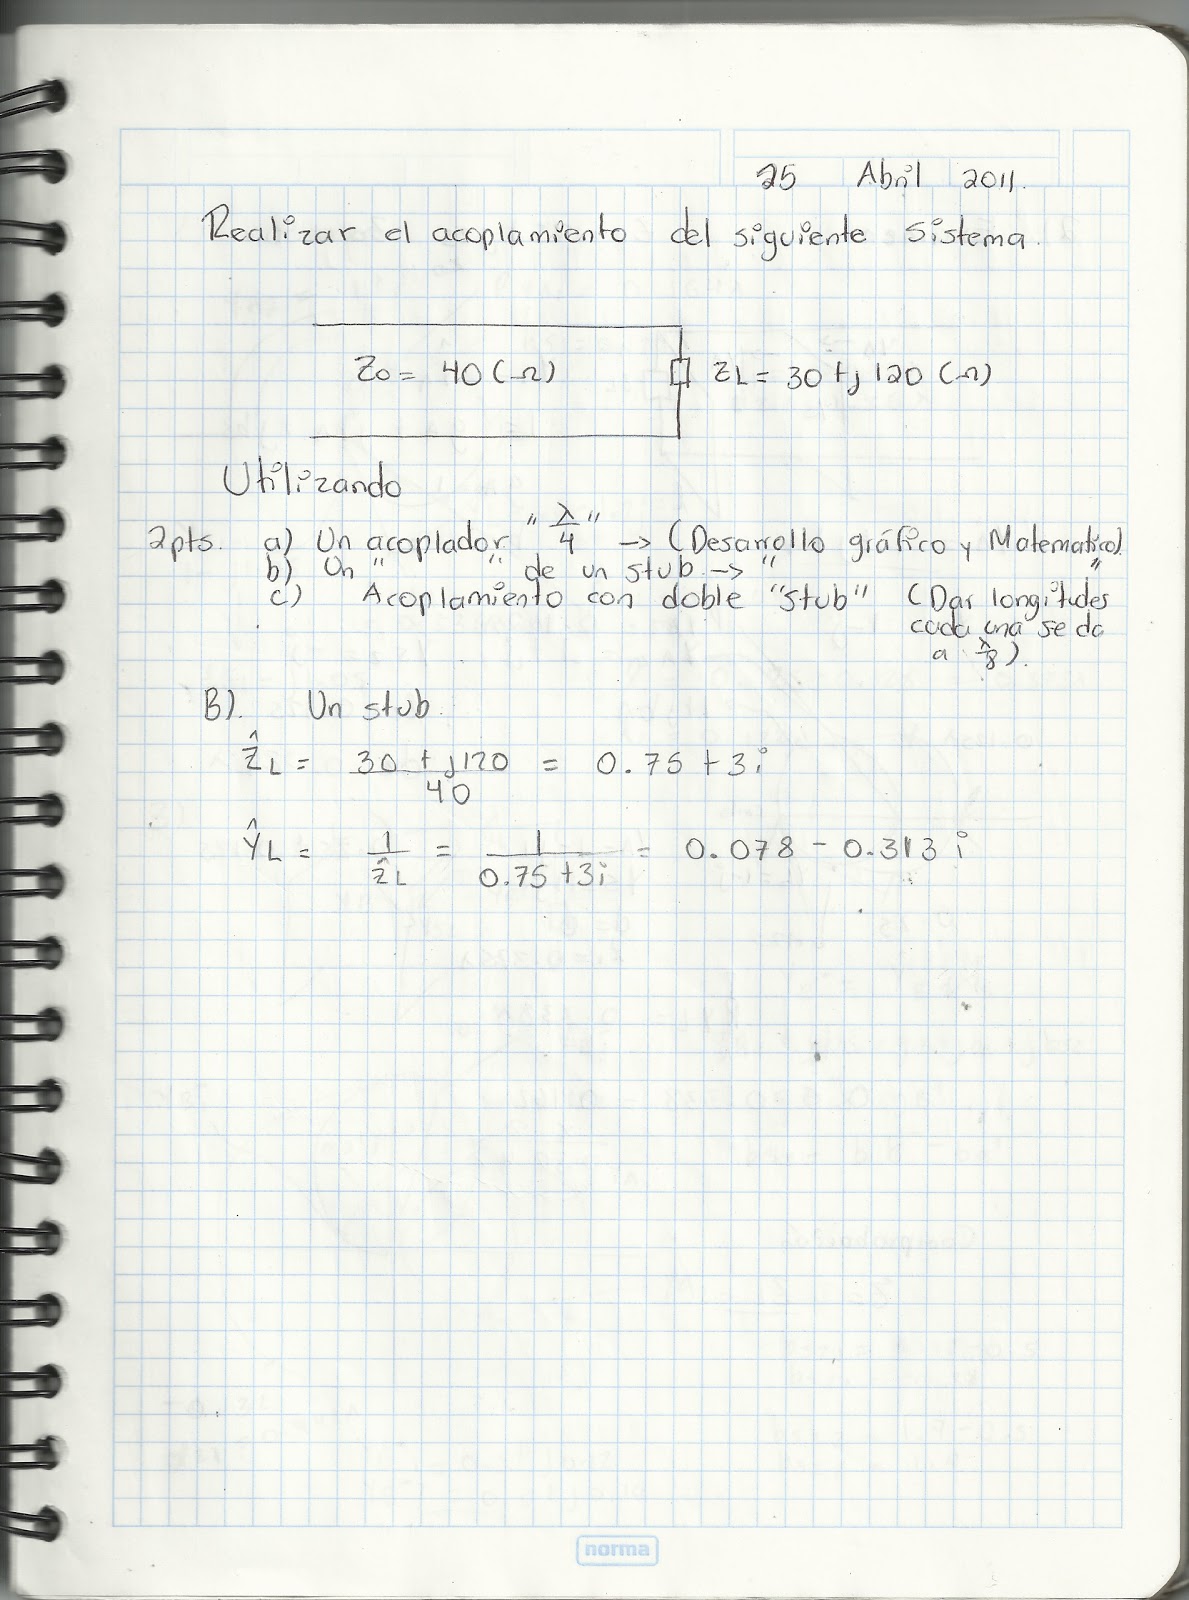 25 Abril 2011.
Realizar el acoplamiento del siguiente sistema.
Zo = 40 (Ω)
ZL = 30 + j 120 (Ω)
Utilizando
2pts. a) Un acoplador "λ/4" -> (Desarrollo gráfico y Matematico).
b) Un " " de un stub. -> " "
c) Acoplamiento con doble "stub" (Dar longitudes
cada una se da
a λ/8).
B). Un stub.
ẐL = 30 + j120 / 40 = 0.75 + 3i
ŶL = 1/ẐL = 1/0.75 + 3i = 0.078 - 0.313 i
norma